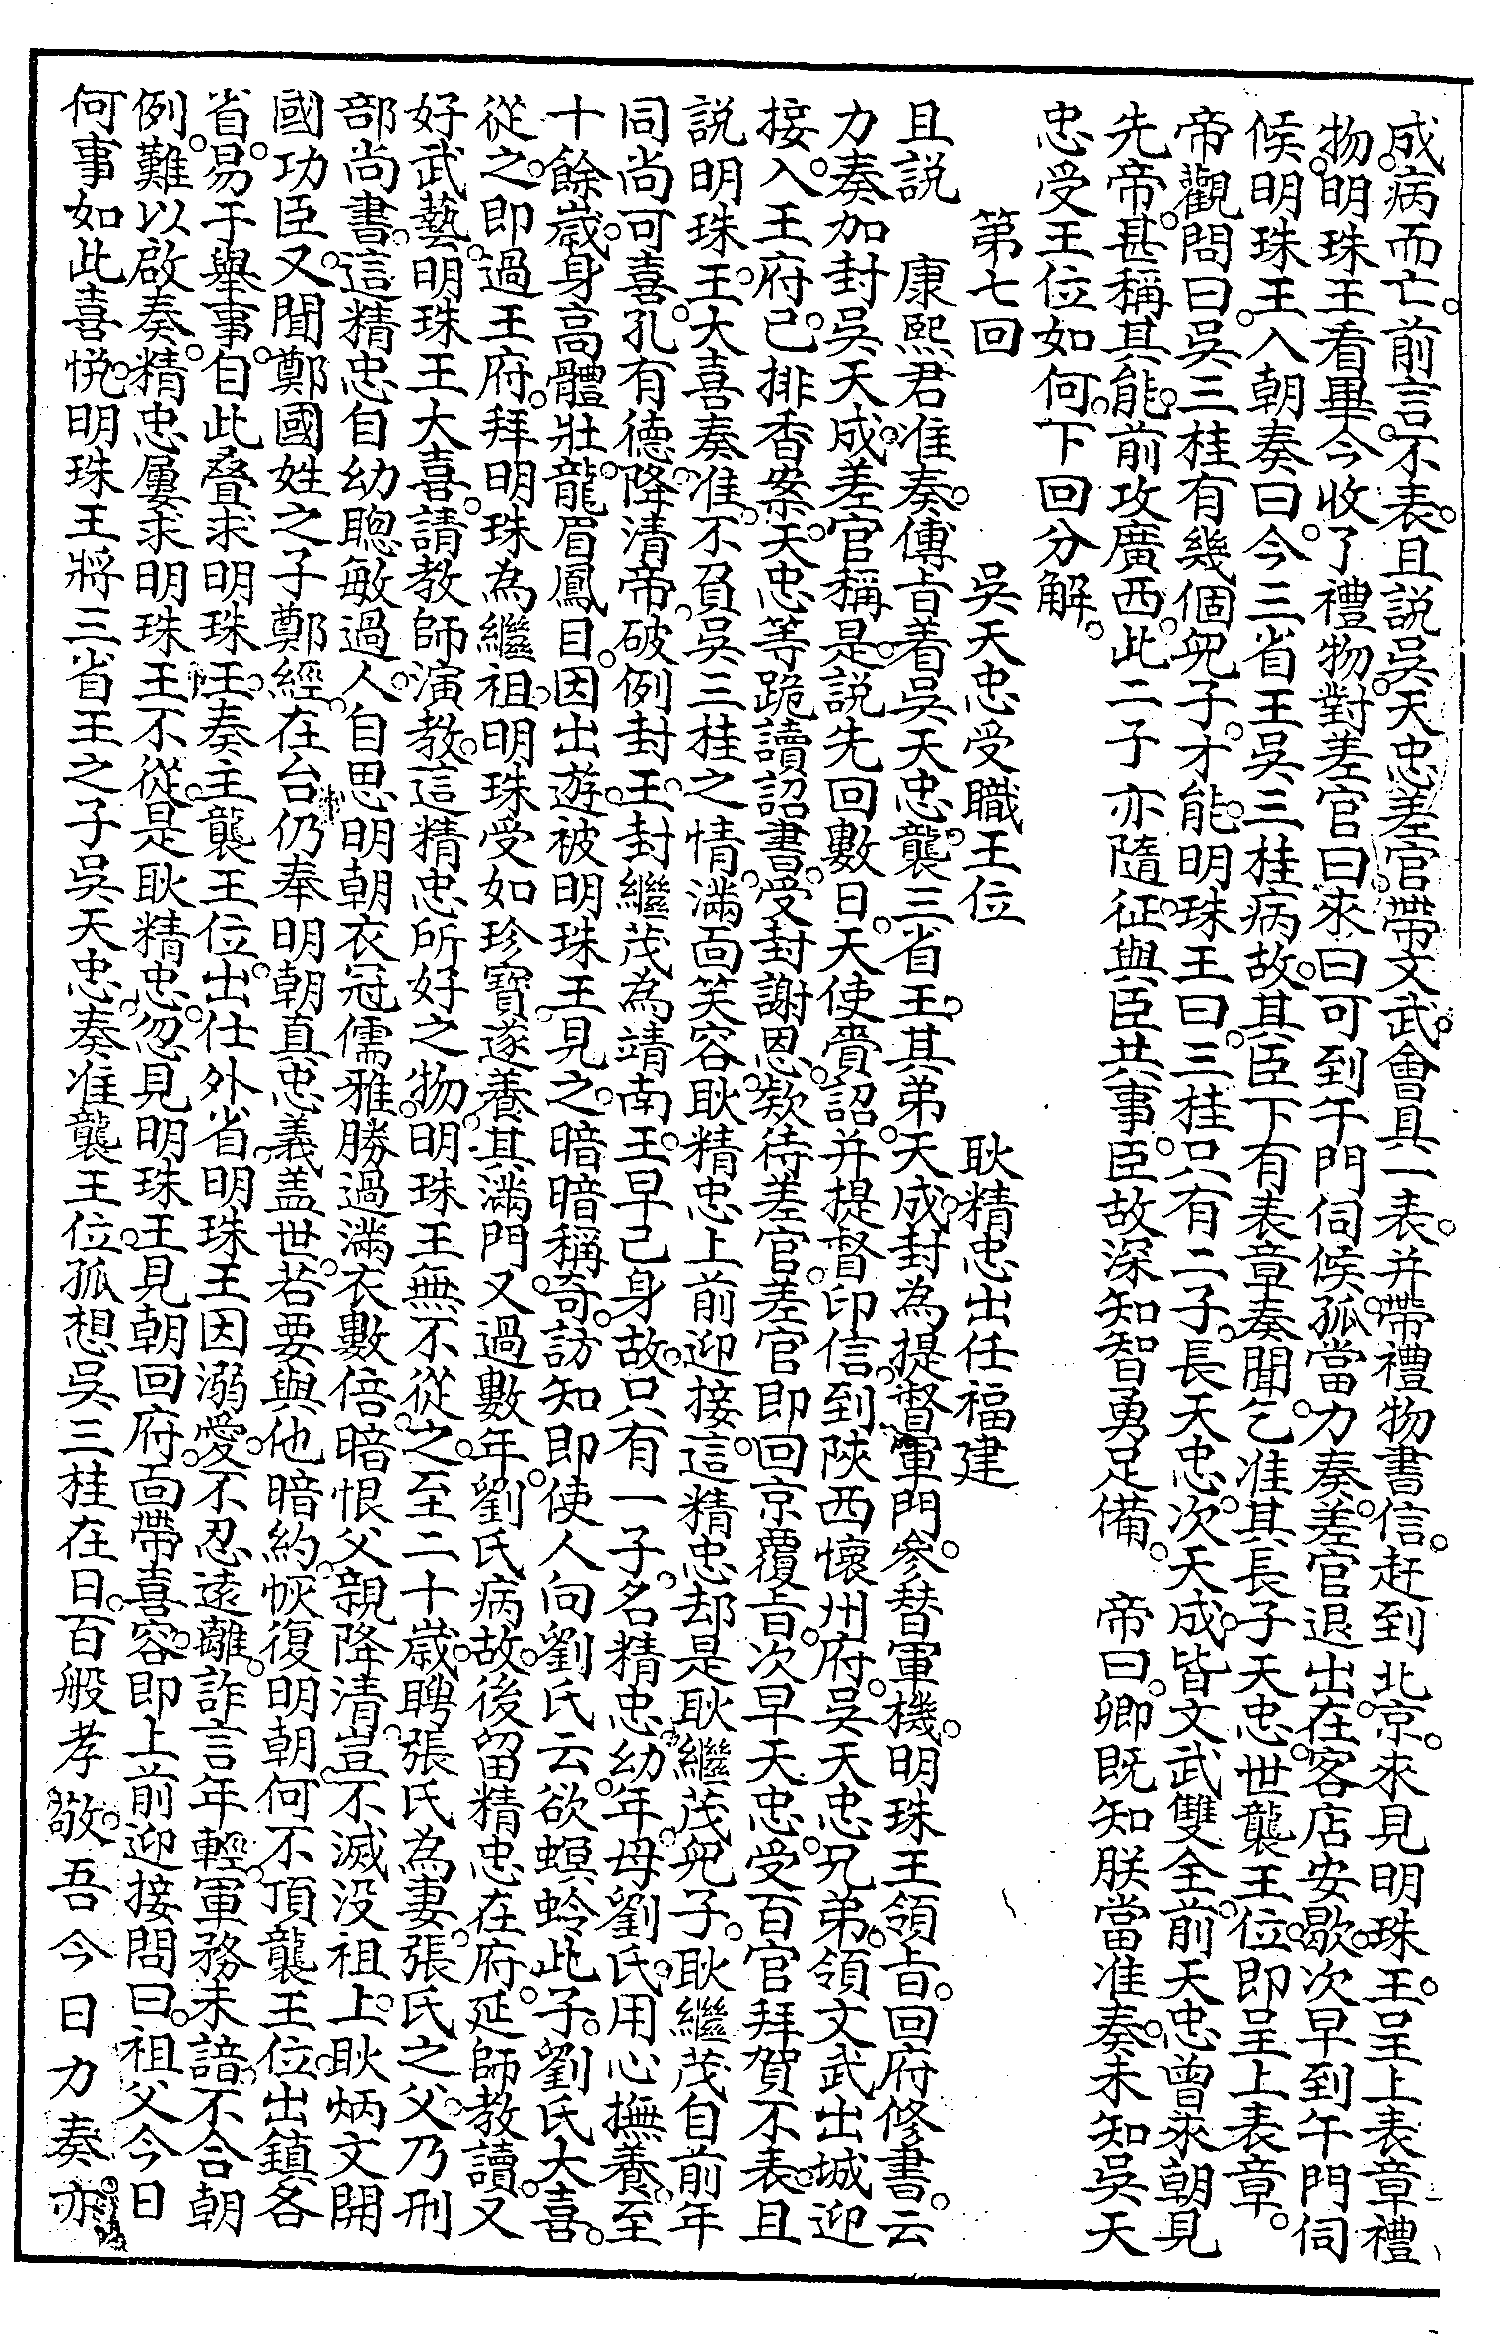 成病而亡。前言不表。且説吳天忠差官帶文武。會具一表。并帶禮物書信。赶到北京。來見明珠王。呈上表章禮
物。明珠王看畢。今收了禮物。對差官曰。來曰可到午門伺候。孤當力奏。差官退出。在客店安歇。次早到午門伺
候明珠王入朝奏曰。今三省王吳三桂病故。其臣下有表章奏聞。乞准其長子天忠。世襲王位。即呈上表章。
帝觀問曰。吳三桂有幾個兒子。才能。明珠王曰。三桂只有二子。長天忠。次天成。皆文武雙全。前天忠曾來朝見
先帝。甚稱其能。前攻廣西。此二子亦隨征。與臣共事。臣故深知智勇足備。 帝曰。卿既知朕當准奏。未知吳天
忠受王位如何。下回分解。
第七回 吳天忠受職王位 耿精忠出任福建
且説 康熙君准奏。傳旨着吳天忠。襲三省王。其弟天成。封為提督軍門。參替軍機。明珠王領旨。回府修書。云
力奏加封吳天成。差官稱是。説先回數日。天使賫詔。并提督印信。到陝西懷州府。吳天忠兄弟。領文武出城迎
接。入王府。已排香案。天忠等跪讀詔書。受封謝恩。欵待差官。差官即回京覆旨。次早天忠。受百官拜賀不表。且
説明珠王。大喜奏准。不負吳三桂之情。滿面笑容。耿精忠上前迎接。這精忠却是耿繼茂兒子。耿繼茂自前年
同尚可喜。孔有德。降清帝。破例封王。封繼茂為靖南王。早已身故。只有一子。名精忠。幼年。母劉氏。用心撫養。至
十餘歲。身高體壯。龍眉鳳目。因出遊。被明珠王見之。暗暗稱奇。訪知即使人向劉氏云。欲螟蛉此子。劉氏大喜。
從之。即過王府。拜明珠為繼祖。明珠受如珍寶。遂養其滿門。又過數年。劉氏病故。後留精忠在府。延師教讀。又
好武藝。明珠王大喜。請教師演教。這精忠所好之物。明珠王無不從之。至二十歲。聘張氏為妻。張氏之父。乃刑
部尚書。這精忠自幼聰敏過人。自思明朝衣冠儒雅。勝過滿衣數倍。暗恨父親降清。豈不滅没祖上。耿炳文開
國功臣。又聞鄭國姓之子鄭經。在台仍奉明朝。真忠義盖世。若要與他暗約。恢復明朝。何不頂襲王位。出鎮各
省。易于舉事。自此叠求明珠王。奏主襲王位。出仕外省。明珠王因溺愛。不忍遠離。詐言年輕。軍務未諳。不合朝
例。難以啟奏。精忠屢求明珠王不從。是耿精忠。忽見明珠王見朝回府。面帶喜容。即上前迎接問曰。祖父今日
何事如此喜悦。明珠王將三省王之子吳天忠。奏准襲王位。孤想吳三桂在日。百般孝敬。吾今日力奏亦